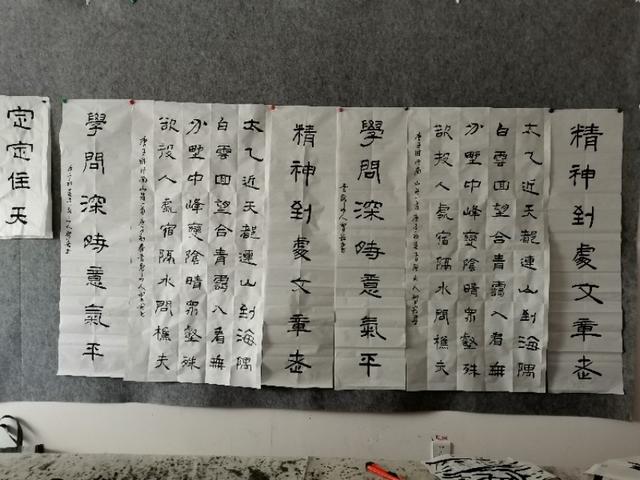 精神到處文章老
太乙近天都連山到海隅
白雲回望合青靄入看無
分野中峰變陰晴眾壑殊
欲投人處宿隔水問樵夫
學問深時意氣平
精神到處文章老
太乙近天都連山到海隅
白雲回望合青靄入看無
分野中峰變陰晴眾壑殊
欲投人處宿隔水問樵夫
學問深時意氣平
定定住天